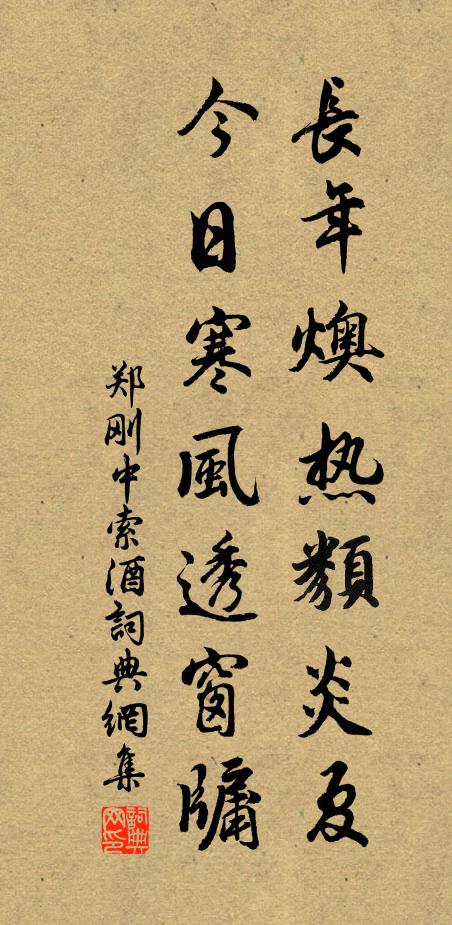 長年燠热類炎夏
今日寒風透窗牖
郑刚中索酒詞典網集
詞典网印